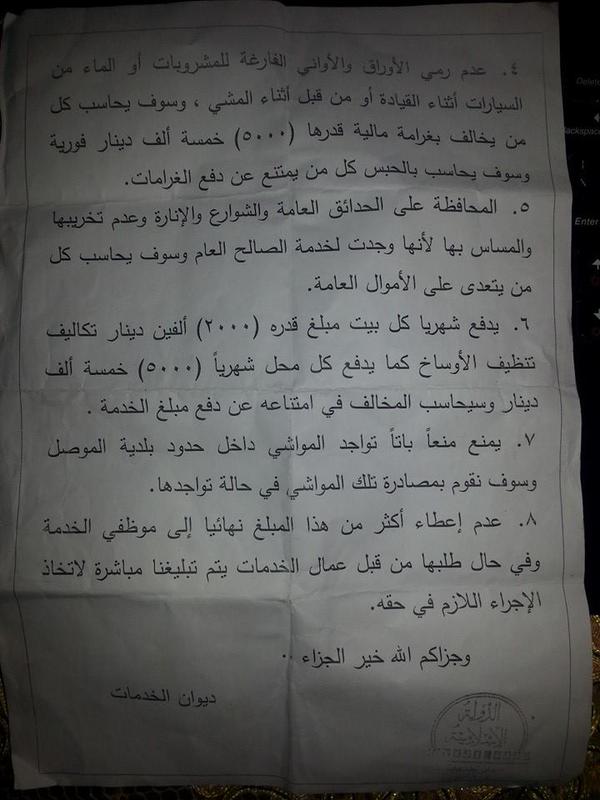 ٤. عدم رمي الأوراق والأواني الفارغة للمشروبات أو الماء من
السيارات أثناء القيادة أو من قبل أثناء المشي ، وسوف يحاسب كل
من يخالف بغرامة مالية قدرها (٥٠٠٠) خمسة ألف دينار فورية
وسوف يحاسب بالحبس كل من يمتنع عن دفع الغرامات.
٥. المحافظة على الحدائق العامة والشوارع والإنارة وعدم تخريبها
والمساس بها لأنها وجدت لخدمة الصالح العام وسوف يحاسب كل
من يتعدى على الأموال العامة.
٦. يدفع شهريا كل بيت مبلغ قدره (٢٠٠٠) ألفين دينار تكاليف
تنظيف الأوساخ كما يدفع كل محل شهرياً (٥٠٠٠) خمسة ألف
دينار وسيحاسب المخالف في امتناعه عن دفع مبلغ الخدمة .
٧. يمنع منعاً باتاً تواجد المواشي داخل حدود بلدية الموصل
وسوف نقوم بمصادرة تلك المواشي في حالة تواجدها.
٨. عدم إعطاء أكثر من هذا المبلغ نهائيا إلى موظفي الخدمة
وفي حال طلبها من قبل عمال الخدمات يتم تبليغنا مباشرة لاتخاذ
الإجراء اللازم في حقه.
وجزاكم الله خير الجزاء ..
ديوان الخدمات
الدولة
الإسلامية
Delete
Backspace
Enter